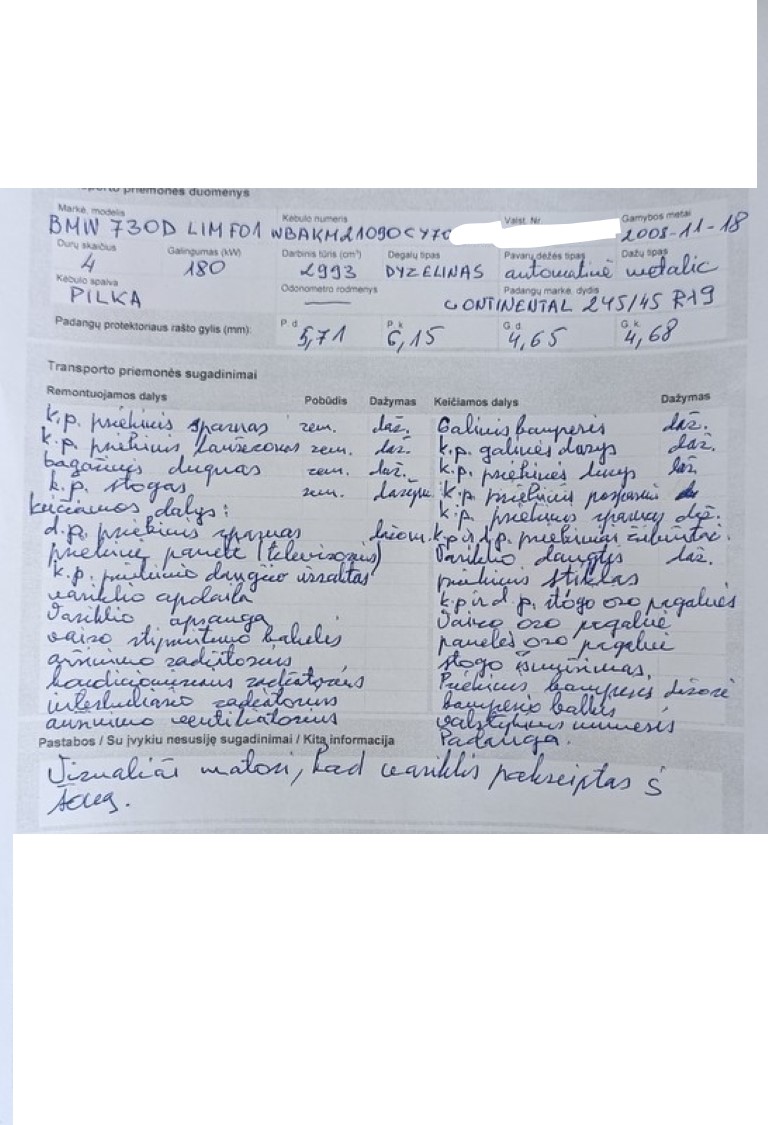 priemonės duomenys
Markė, modelis Kėbulo numeris Valst. Nr. Gamybos metai
BMW 730D LIM F01 WBAKM21090CY70 2008-11-18
Durų skaičius Galingumas (kW) Darbinis tūris (cm³) Degalų tipas Pavarų dėžės tipas Dažų tipas
4 180 2993 DYZELINAS automatinė metalic
Kėbulo spalva Odometro rodmenys Padangų markė, dydis
PILKA CONTINENTAL 245/45 R19
Padangų protektoriaus rašto gylis (mm): P.d. 5,71 P.k. 6,15 G.d. 4,65 G.k. 4,68
Transporto priemonės sugadinimai
Remontuojamos dalys Pobūdis Dažymas Keičiamos dalys Dažymas
k.p. priekinis sparnas rem. daž. Galinis bamperis daž.
k.p. priekinis rem. daž. k.p. galinės durys daž.
bagažinės dugnas rem. daž. k.p. priekinės durys daž.
k.p. stogas rem. k.p. priekinis
keičiamos dalys: k.p. priekinis sparnas daž.
d.p. priekinis sparnas k.p. ir d.p. priekiniai
priekinė panelė (televizorius) Variklio dangtis daž.
k.p. priekinio dangčio užraktas priekinis stiklas
variklio apdaila k.p. ir d.p. stogo oro pagalvės
Variklio apsauga Vairo oro pagalvė
vairo stiprintuvo bakelis panelės oro pagalvė
aušinimo radiatorius stogo išmušimas,
kondicionieriaus radiatorius Priekinis bamperis
interkulerio radiatorius bamperio balkis
aušinimo ventiliatorius valstybinis numeris
Padanga.
Pastabos / Su įvykiu nesusiję sugadinimai / Kita informacija
Vizualiai matosi, kad variklis pakreiptas į
šoną.